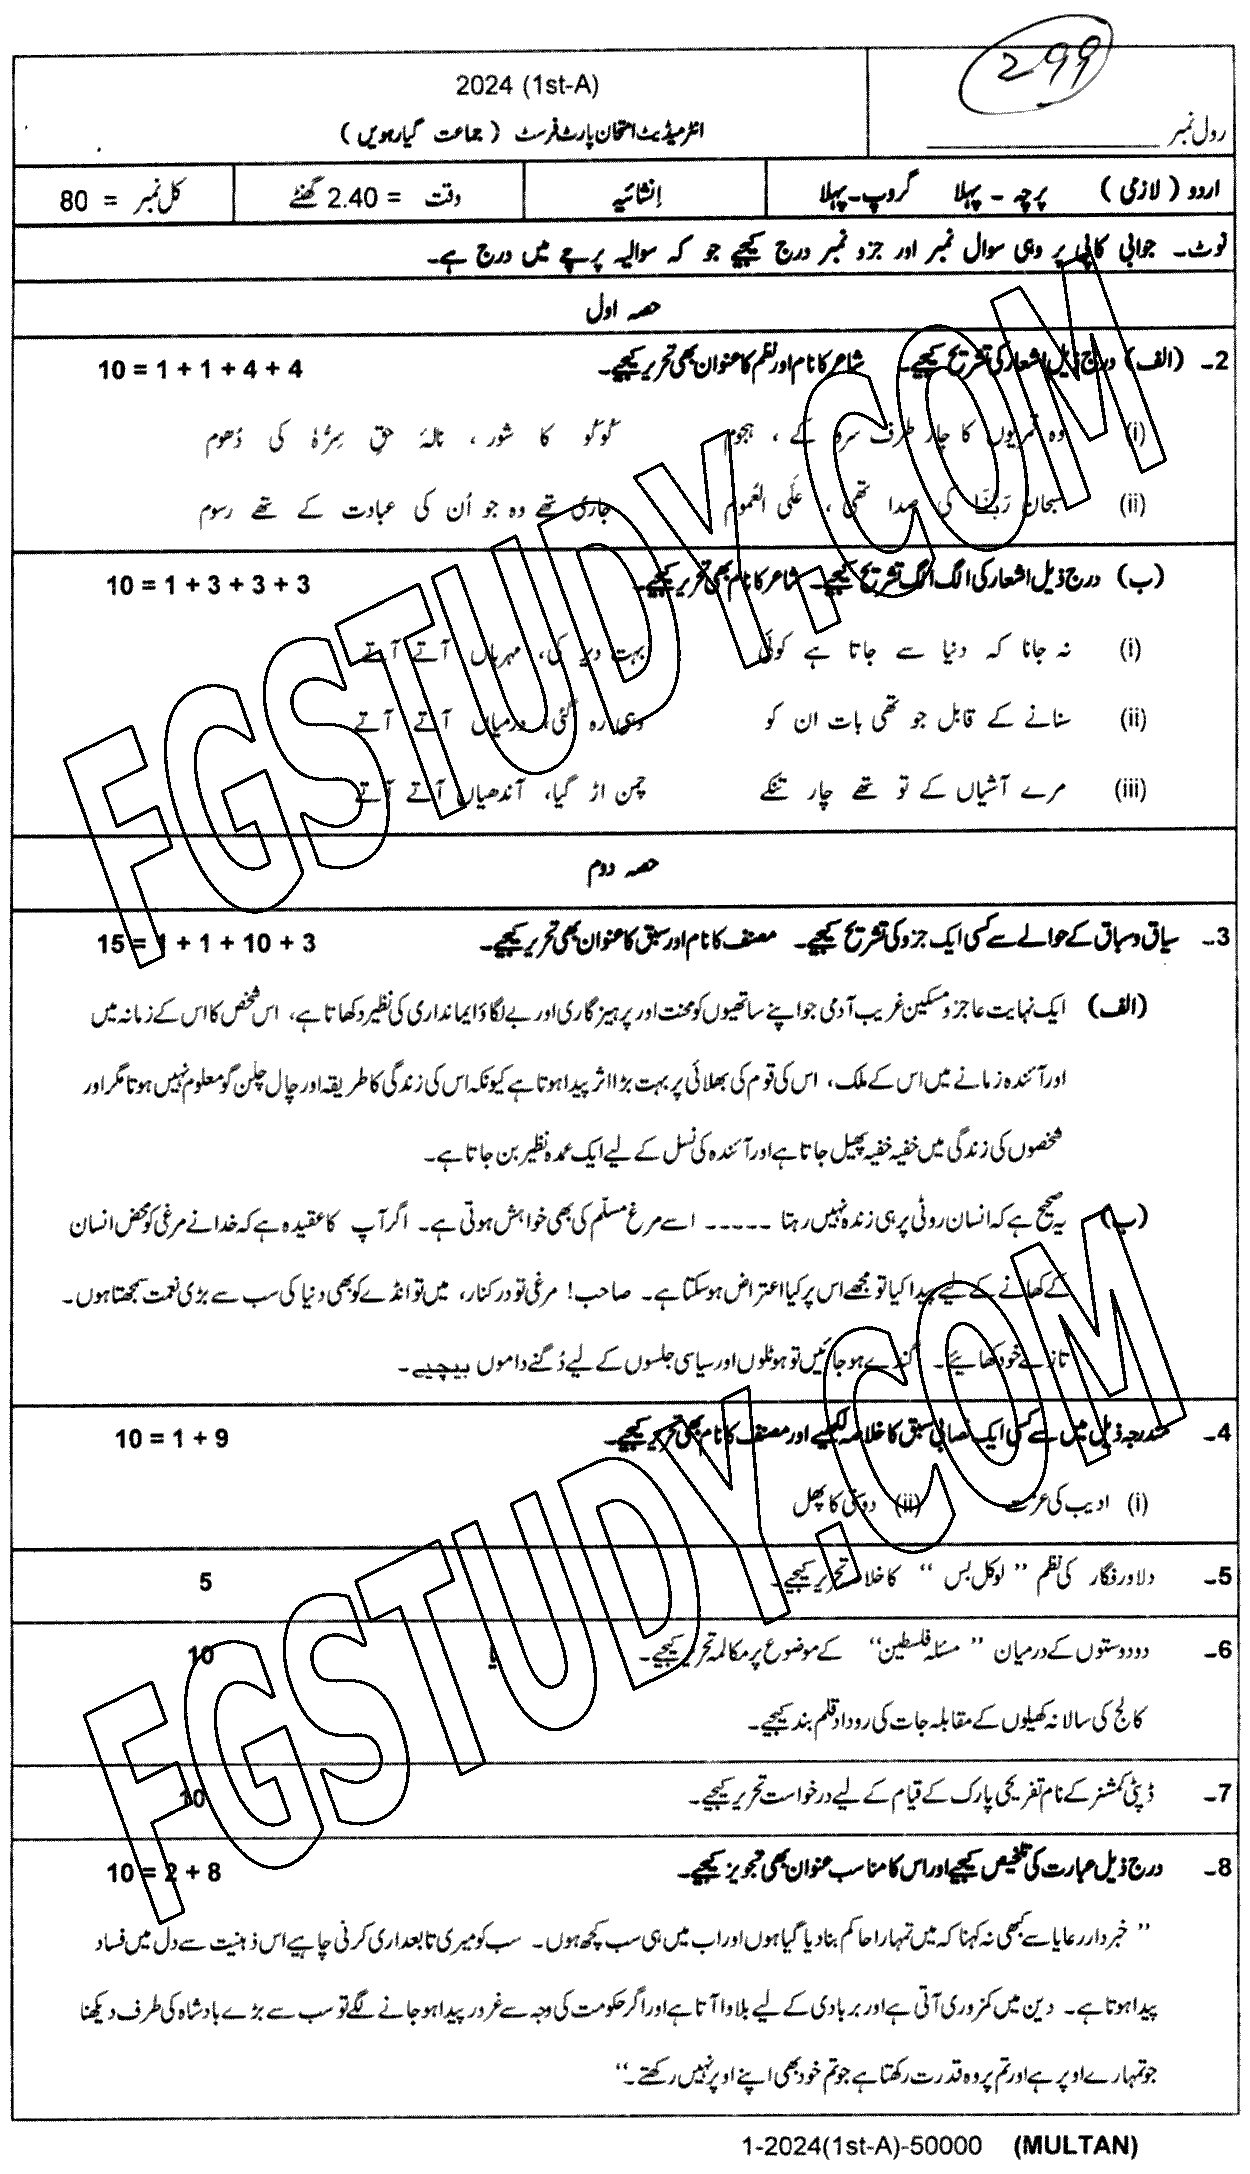 299
2024 (1st-A)
انٹرمیڈیٹ امتحان پارٹ فرسٹ ( جماعت گیارہویں )
رول نمبر
اردو ( لازمی ) پرچہ - پہلا گروپ - پہلا
اِنشائیہ
وقت = 2.40 گھنٹے
کل نمبر = 80
نوٹ۔ جوابی کاپی پر وہی سوال نمبر اور جزو نمبر درج کیجیے جو کہ سوالیہ پرچے میں درج ہے۔
حصہ اول
2۔ (الف) درج ذیل اشعار کی تشریح کیجیے۔ شاعر کا نام اور نظم کا عنوان بھی تحریر کیجیے۔ 10 = 1 + 1 + 4 + 4
(i) وہ قمریوں کا چار طرف سرو کے ، ہجوم کُوکُو کا شور ، نالۂ حقِ سِرُّہٗ کی دُھوم
(ii) سبحان رَبَّنَا کی صدا تھی ، عَلَی العُموم جاری تھے وہ جو اُن کی عبادت کے تھے رسوم
(ب) درج ذیل اشعار کی الگ الگ تشریح کیجیے۔ شاعر کا نام بھی تحریر کیجیے۔ 10 = 1 + 3 + 3 + 3
(i) نہ جانا کہ دنیا سے جاتا ہے کوئی بہت دیر کی، مہرباں آتے آتے
(ii) سنانے کے قابل جو تھی بات ان کو وہی رہ گئی، درمیاں آتے آتے
(iii) مرے آشیاں کے تو تھے چار تنکے چمن اڑ گیا، آندھیاں آتے آتے
حصہ دوم
3۔ سیاق و سباق کے حوالے سے کسی ایک جزو کی تشریح کیجیے۔ مصنف کا نام اور سبق کا عنوان بھی تحریر کیجیے۔ 15 = 1 + 1 + 10 + 3
(الف) ایک نہایت عاجز و مسکین غریب آدمی جو اپنے ساتھیوں کو محنت اور پرہیز گاری اور بے لگاؤ ایمانداری کی نظیر دکھاتا ہے، اس شخص کا اس کے زمانہ میں
اور آئندہ زمانے میں اس کے ملک، اس کی قوم کی بھلائی پر بہت بڑا اثر پیدا ہوتا ہے کیونکہ اس کی زندگی کا طریقہ اور چال چلن گو معلوم نہیں ہوتا مگر اور
شخصوں کی زندگی میں خفیہ خفیہ پھیل جاتا ہے اور آئندہ کی نسل کے لیے ایک عمدہ نظیر بن جاتا ہے۔
(ب) یہ صحیح ہے کہ انسان روٹی پر ہی زندہ نہیں رہتا ۔۔۔۔۔ اسے مرغ مسلّم کی بھی خواہش ہوتی ہے۔ اگر آپ کا عقیدہ ہے کہ خدا نے مرغی کو محض انسان
کے کھانے کے لیے پیدا کیا تو مجھے اس پر کیا اعتراض ہو سکتا ہے۔ صاحب! مرغی تو درکنار، میں تو انڈے کو بھی دنیا کی سب سے بڑی نعمت سمجھتا ہوں۔
تازے خود کھائیے۔ گندے ہو جائیں تو ہوٹلوں اور سیاسی جلسوں کے لیے دُگنے داموں بیچیے۔
4۔ مندرجہ ذیل میں سے کسی ایک نصابی سبق کا خلاصہ لکھیے اور مصنف کا نام بھی تحریر کیجیے۔ 10 = 1 + 9
(i) ادیب کی عزت (ii) دوستی کا پھل
5۔ دلاور فگار کی نظم ‘‘ لوکل بس ’’ کا خلاصہ تحریر کیجیے۔ 5
6۔ دو دوستوں کے درمیان ‘‘ مسئلہ فلسطین’’ کے موضوع پر مکالمہ تحریر کیجیے۔ یا 10
کالج کی سالانہ کھیلوں کے مقابلہ جات کی روداد قلم بند کیجیے۔
7۔ ڈپٹی کمشنر کے نام تفریحی پارک کے قیام کے لیے درخواست تحریر کیجیے۔ 10
8۔ درج ذیل عبارت کی تلخیص کیجیے اور اس کا مناسب عنوان بھی تجویز کیجیے۔ 10 = 2 + 8
‘‘ خبردار رعایا سے کبھی نہ کہنا کہ میں تمہارا حاکم بنا دیا گیا ہوں اور اب میں ہی سب کچھ ہوں۔ سب کو میری تابعداری کرنی چاہیے اس ذہنیت سے دل میں فساد
پیدا ہوتا ہے۔ دین میں کمزوری آتی ہے اور بربادی کے لیے بلاوا آتا ہے اور اگر حکومت کی وجہ سے غرور پیدا ہو جانے لگے تو سب سے بڑے بادشاہ کی طرف دیکھنا
جو تمہارے اوپر ہے اور تم پر وہ قدرت رکھتا ہے جو تم خود بھی اپنے اوپر نہیں رکھتے۔’’
1-2024(1st-A)-50000 (MULTAN)
FGSTUDY.COM
FGSTUDY.COM